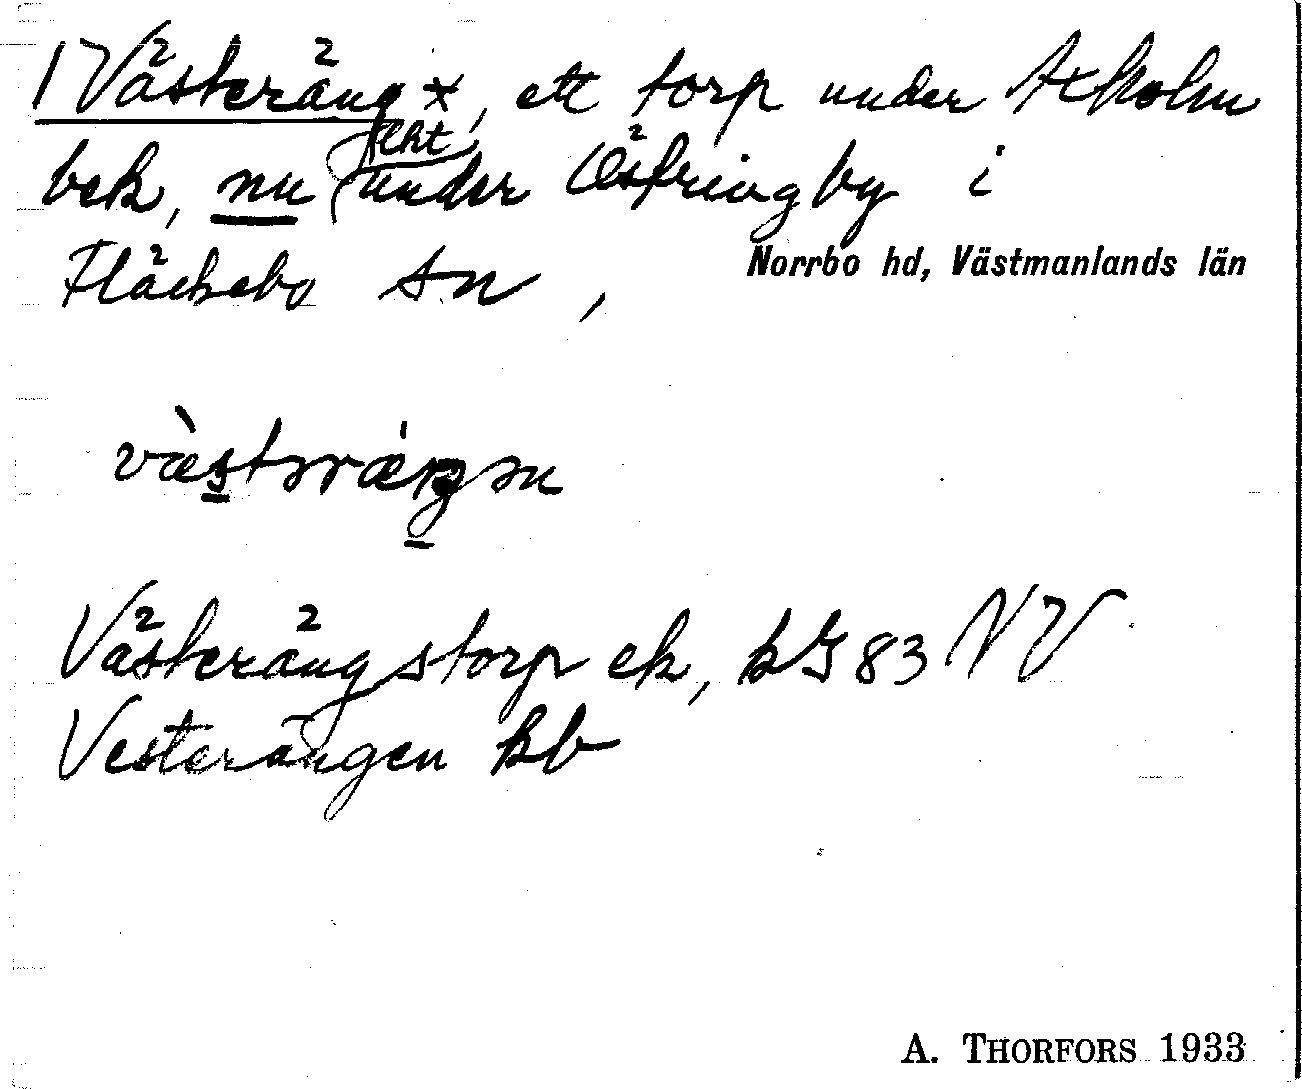 1 Västeräng x, ett torp under Axholm
bek, nu lht under Östringby i
Fläckebo sn, Norrbo hd, Västmanlands län
væ̀stərǽŋən
Västerängstorp ek, hG 83 NV
Vesterängen kb
A. THORFORS 1933